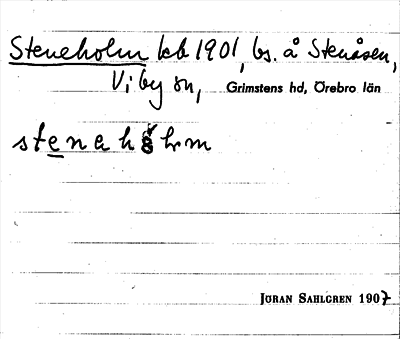 Steneholm kb 1901, bs. å Stenåsen,
Viby sn, Grimstens hd, Örebro län
JÖRAN SAHLGREN 1907